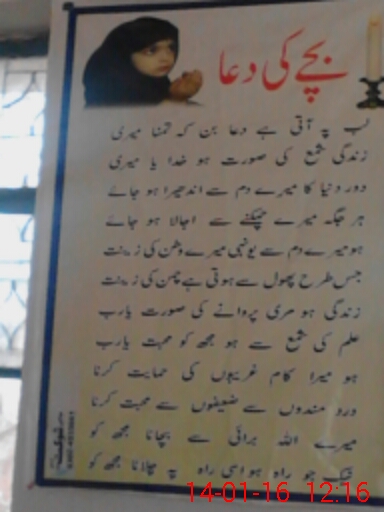 بچے کی دعا
لب پہ آتی ہے دعا بن کر تمنا میری
زندگی شمع کی صورت ہو خدا یا میری
دور دنیا کا میرے دم سے اندھیرا ہو جائے
ہر جگہ میرے چمکنے سے اجالا ہو جائے
ہو میرے دم سے یونہی میرے وطن کی زینت
جس طرح پھول سے ہوتی ہے چمن کی زینت
زندگی ہو مری پروانے کی صورت یارب
علم کی شمع سے ہو مجھ کو محبت یارب
ہو میرا کام غریبوں کی حمایت کرنا
درد مندوں سے ضعیفوں سے محبت کرنا
میرے اللہ برائی سے بچانا مجھ کو
نیک جو راہ ہو اسی راہ پہ چلانا مجھ کو
14-01-16 12:16